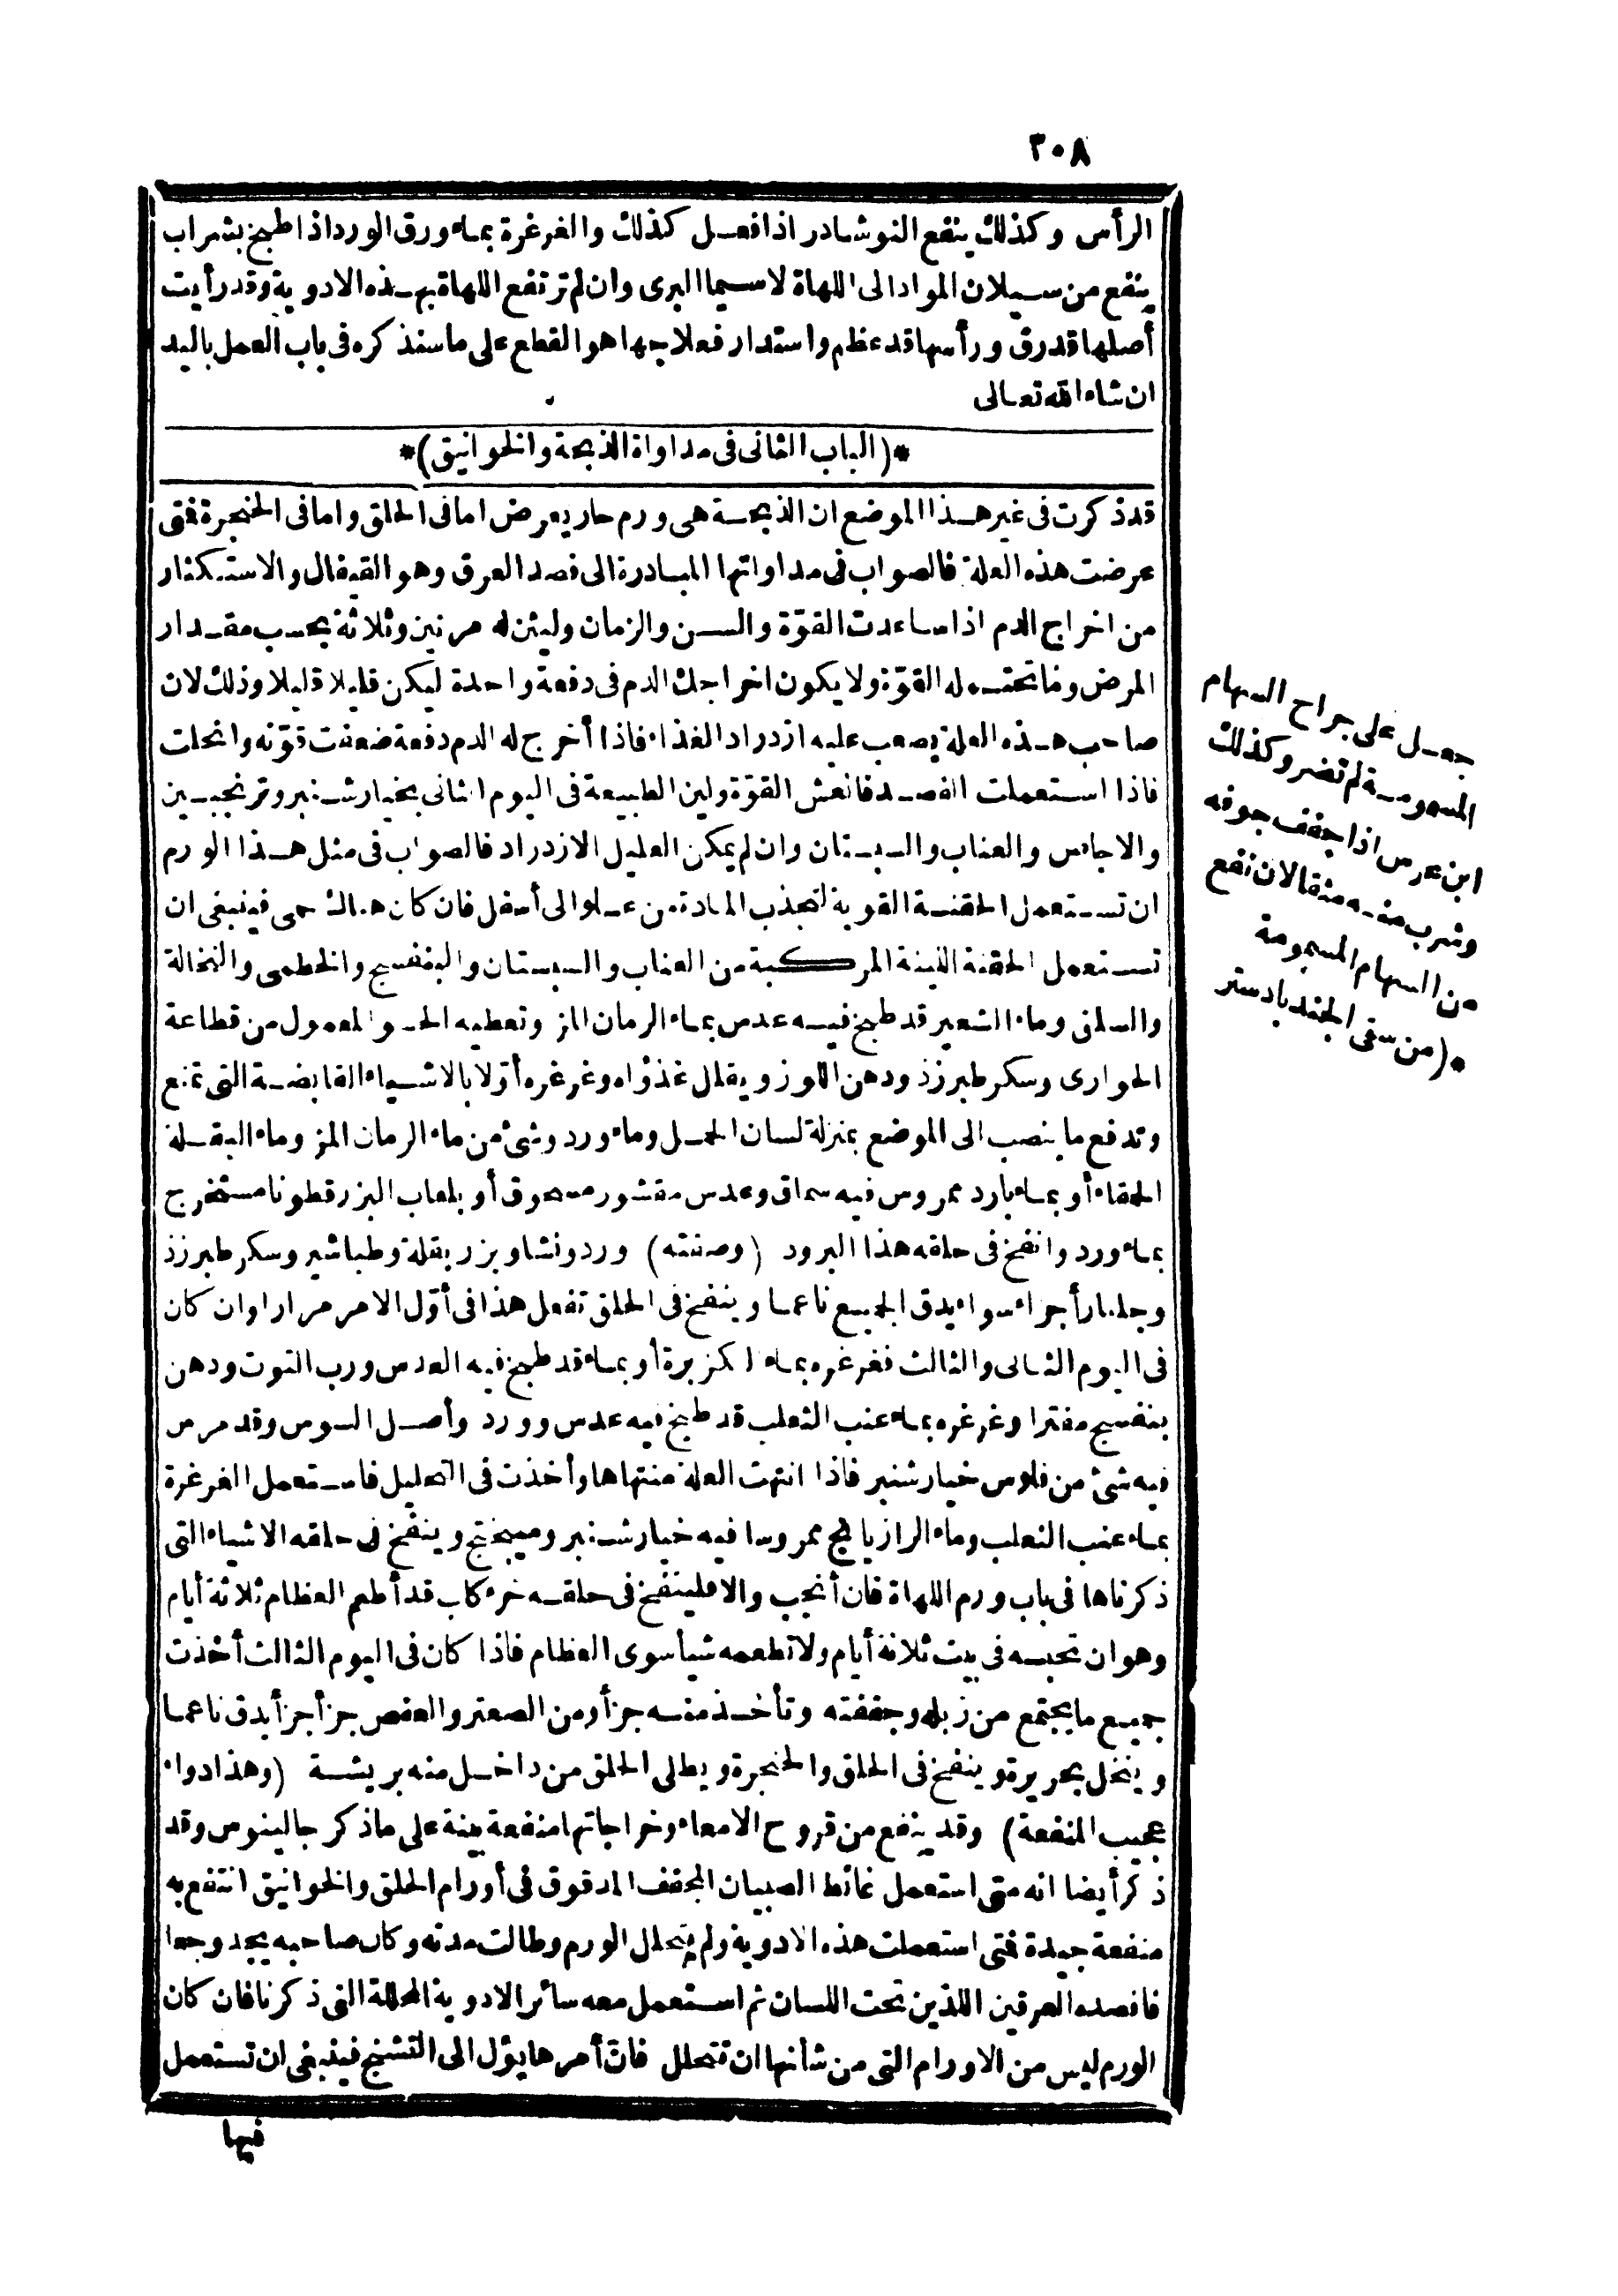 ٣٠٨
الرأس وكذلك ينفع النوشادر اذا فعل كذلك والغرغرة بماء ورق الورد اذا طبخ بشراب
ينفع من سيلان المواد الى اللهاة لا سيما البرى وان لم ترتفع اللهاة بهذه الادوية وقد رأيت
أصلها قد رق ورأسها قد عظم واستدار فعلاجها هو القطع على ما سنذكره فى باب العمل باليد
ان شاء الله تعالى
*(الباب الثانى فى مداواة الذبحة والخوانيق)*
قد ذكرت فى غير هذا الموضع ان الذبحة هى ورم حار يعرض اما فى الحلق واما فى الحنجرة فمتى
عرضت هذه العلة فالصواب فى مداواتها المبادرة الى فصد العرق وهو القيفال والاستكثار
من اخراج الدم اذا ساعدت القوّة والسن والزمان وليثن له مرتين وثلاثة بحسب مقدار
المرض وما تحتمله القوّة ولا يكون اخراجك الدم فى دفعة واحدة ليكن قليلا قليلا وذلك لان
صاحب هذه العلة يصعب عليه ازدراد الغذاء فاذا أخرج له الدم دفعة ضعفت قوّته وانحلت
فاذا استعملت الفصد فانعش القوّة ولين الطبيعة فى اليوم الثانى بخيارشنبر وترنجبين
والاجاص والعناب والسبستان وان لم يمكن العليل الازدراد فالصواب فى مثل هذا الورم
ان تستعمل الحقنة القوية لتجذب المادة من علوالى أسفل فان كان هناك حمى فينبغى ان
تستعمل الحقنة اللينة المركبة من العناب والسبستان والبنفسج والخطمى والنخالة
والسلق وماء الشعير قد طبخ فيه عدس بماء الرمان المز وتعطيه الحسو المعمول من قطاعة
الحوارى وسكر طبرزذ ودهن اللوز ويقلل غذؤاه وغرغره أوّلا بالاشياء القابضة التى تمنع
وتدفع ما ينصب الى الموضع بمنزلة لسان الحمل وماء ورد وشئ من ماء الرمان المز وماء البقلة
الحمقاء أو بماء بارد ممروس فيه سماق وعدس مقشور مسحوق أو بلعاب البزرقطونا مستخرج
بماء ورد وانفخ فى حلقه هذا البرود (وصفته) ورد ونشا وبزر بقلة وطباشير وسكر طبرزذ
وجلنار أجزاء سواء يدق الجميع ناعما وينفخ فى الحلق تفعل هذا فى أوّل الامر مرارا وان كان
فى اليوم الثانى والثالث فغرغره بماء الكزبرة أو بماء قد طبخ فيه العدس ورب التوت ودهن
بنفسج مفترا وغرغره بماء عنب الثعلب قد طبخ فيه عدس وورد وأصل السوس وقد مرس
فيه شئ من فلوس خيارشنبر فاذا انتهت العلة منتهاها وأخذت فى التحليل فاستعمل الغرغرة
بماء عنب الثعلب وماء الرازيانج ممروسا فيه خيارشنبر وميبختج وينفخ فى حلقه الاشياء التى
ذكرناها فى باب ورم اللهاة فان أنجب والا فلينفخ فى حلقه خرء كلب قد أطعم العظام ثلاثة أيام
وهو ان تحبسه فى بيت ثلاثة أيام ولا تطعمه شيأ سوى العظام فاذا كان فى اليوم الثالث أخذت
جميع ما يجتمع من زبله وجففته وتأخذ منه جزأ ومن الصعتر والعفص جزأ جزأ يدق ناعما
وينخل بحريرة وينفخ فى الحلق والحنجرة ويطلى الحلق من داخل منه بريشة (وهذا دواء
عجيب المنفعة) وقد ينفع من قروح الامعاء وخراجاتها منفعة بينة على ما ذكر جالينوس وقد
ذكر أيضا انه متى استعمل غائط الصبيان المجفف المدقوق فى أورام الحلق والخوانيق انتفع به
منفعة جيدة فمتى استعملت هذه الادوية ولم يتحلل الورم وطالت مدته وكان صاحبه يجد وجعا
فافصده العرقين اللذين تحت اللسان ثم استعمل معه سائر الادوية المحللة التى ذكرنا فان كان
الورم ليس من الاورام التى من شأنها ان تتحلل فانّ أمرها يؤل الى التشنج فينبغى ان تستعمل
فيها
جعل على جراح السهام
المسمومة لم تضر وكذلك
ابن عرس اذا جفف جوفه
وشرب منه مثقالان نفع
من السهام المسمومة
*(من سقى الجندبادستر